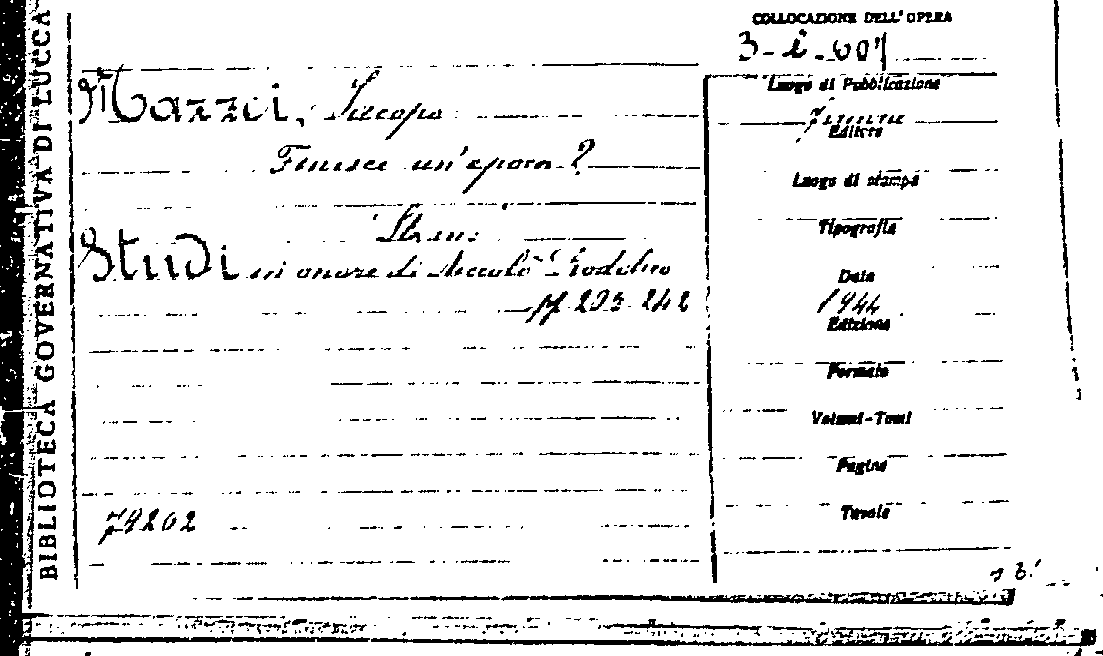 BIBLIOTECA GOVERNATIVA DI LUCCA
COLLOCAZIONE DELL'OPERA
Mazzei, Jacopo
Finisce un'epoca?
Studi in onore di Niccolò Rodolico
pp 293-242
74202
Luogo di Pubblicazione
Firenze
Editore
Luogo di stampa
Tipografia
Data
1944
Edizione
Formato
Volumi-Tomi
Pagine
Tavole